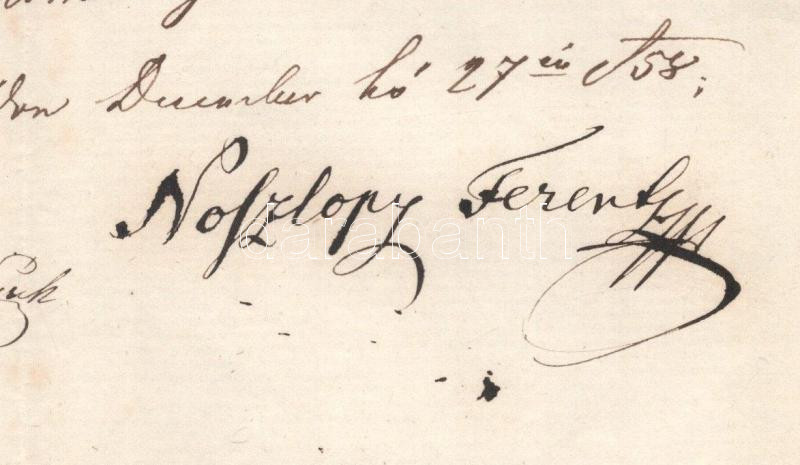 December hó 27én 858;
Noszlopy Ferentz
darabanth